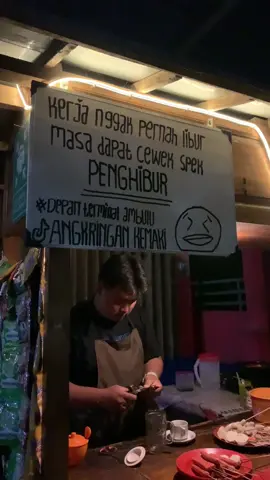 Kerja nggak pernah libur
masa dapat cewek spek
PENGHIBUR
*Depan terminal ambulu
ANGKRINGAN KEMAKI